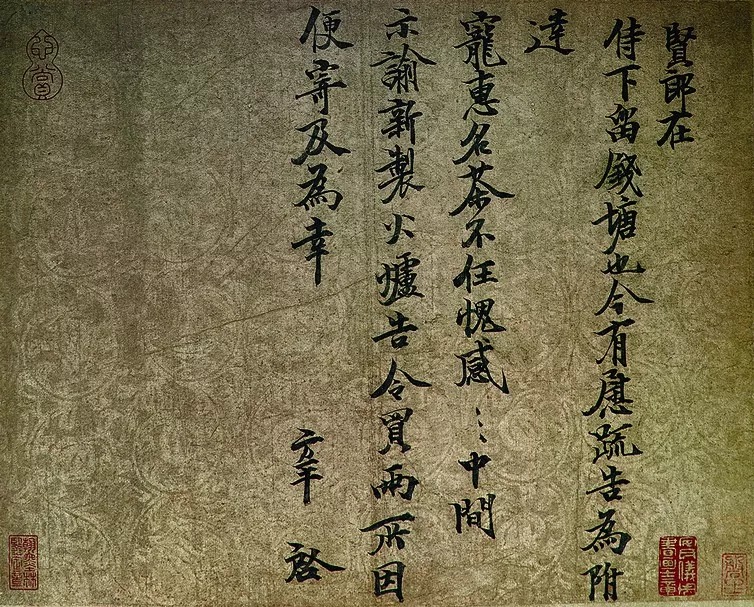 賢郎在
侍下留錢塘也今有慰疏告為附
達
寵惠名茶不任愧感〻〻中間
示諭新製火爐告令買兩所因
便寄及為幸
啓